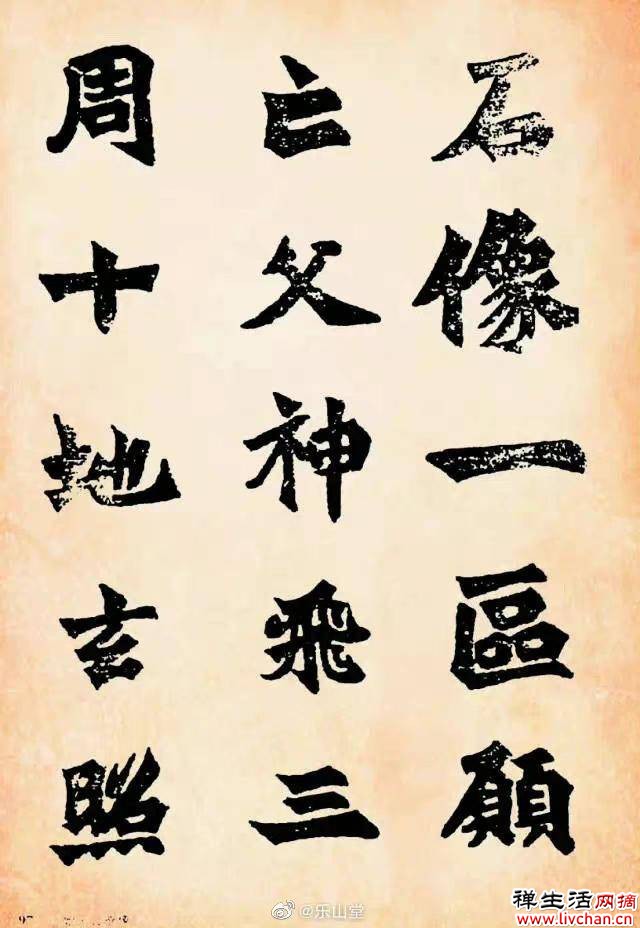 石像一區願
亡父神飛三
周十地玄照
@乐山堂
禅生活网摘
www.livchan.com